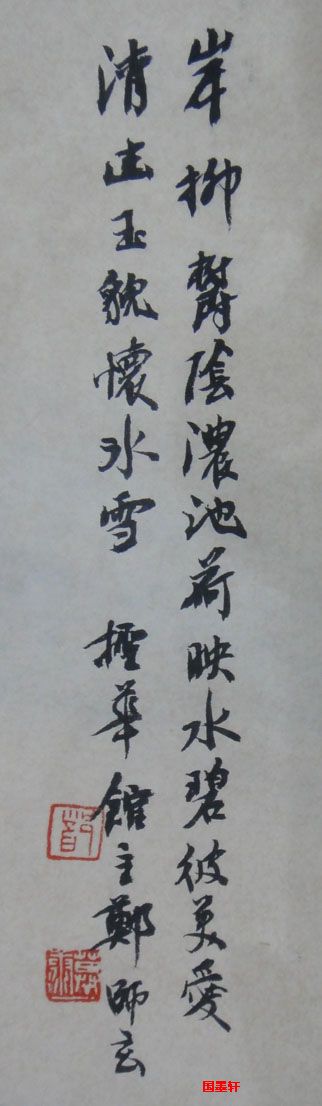 岸柳鬱陰濃池荷映水碧彼美愛
清幽玉貌懷冰雪 華館主鄭師玄
国墨轩